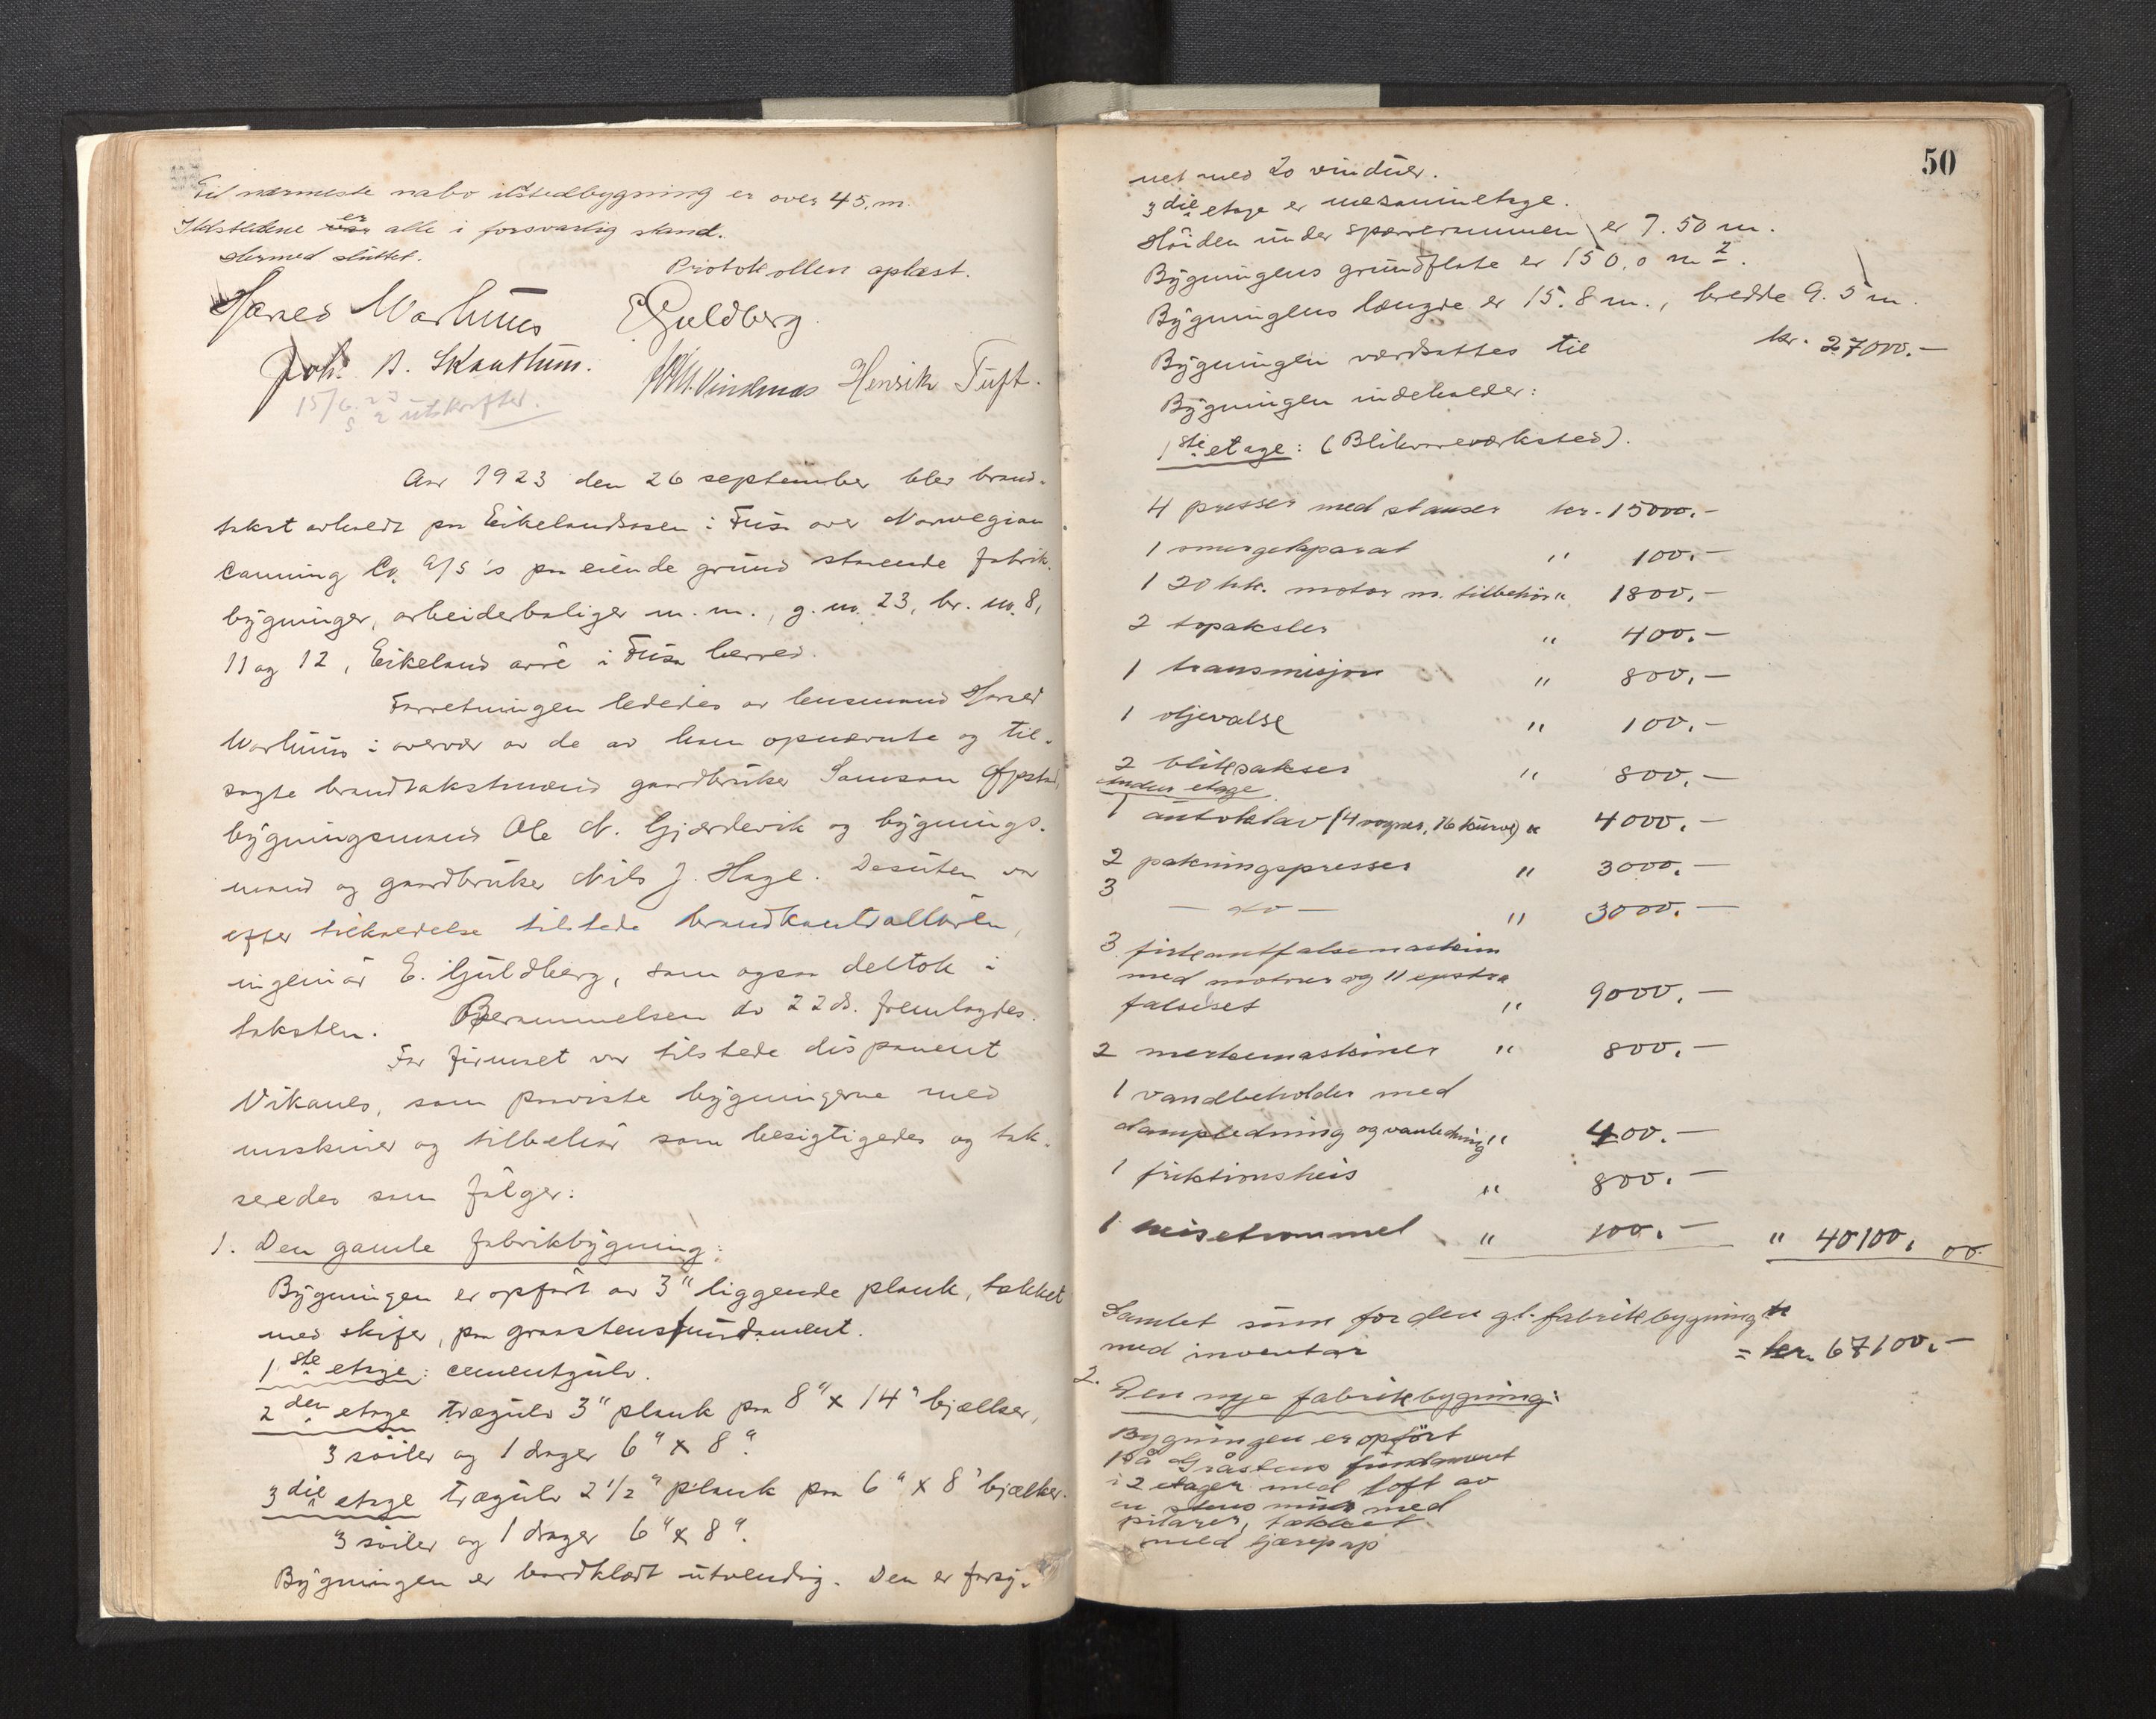 Til nærmeste nabo ildstedbygning er over 45 m.
Ildstedene er alle i forsvarlig stand.
Hermed sluttet.
Protokollen oplæst.
E Guldberg.
Joh. A. Skauthum.
Henrik Tuft.
15/6 23
2 utskrifter.
Aar 1923 den 26 september blev brand-
takst avholdt paa Eikelandsosen i Fusa over Norwegian
Canning Co. A/S's paa eiende grund staaende fabrik-
bygninger, arbeiderboliger m. m., g. no. 23, br. no. 8,
11 og 12, Eikeland øvre i Fusa herred.
Forretningen lededes av lensmand
i overvær av de av ham opnævnte og til-
sagte brandtakstmænd gaardbruker Samson
bygningsmand Ole N. Gjerdevik og bygnings-
mand og gaardbruker Nils J. Hage. Desuten var
efter tilkaldelse tilstede brandkontrolløren,
ingeniør E. Guldberg, som ogsaa deltok i
taksten. Berammelsen av 22 ds. fremlagdes.
For firmaet var tilstede disponent
Vikanes, som paaviste bygningerne med
maskiner og tilbehør som besigtigedes og tak-
seredes som følger:
1. Den gamle fabrikbygning:
Bygningen er opført av 3" liggende plank, tækket
med skifer, paa graastensfundament.
1ste etage: cementgulv.
2den etage trægulv 3" plank paa 8" x 14" bjælker,
3 søiler og 1 drager 6" x 8".
3die etage trægulv 2 1/2" plank paa 6" x 8" bjælker.
3 søiler og 1 drager 6" x 8".
Bygningen er bordklædt utvendig. Den er forsy-
50
net med 20 vinduer.
3die etage er mesaninetage.
Høiden under sperrerummen er 7.50 m.
Bygningens grundflate er 150,0 m2.
Bygningens længde er 15.8 m., bredde 9.5 m.
Bygningen værdsattes til kr. 27000.-
Bygningen indeholder:
1ste etage: (Blikvareverksted).
4 presser med stanser kr. 15000.-
1 smergelaparat " 100.-
1 20 hk. motor m. tilbehør " 1800.-
2 topaksler " 400.-
1 transmisjon " 800.-
1 oljevalse " 100.-
2 bliksakser " 800.-
anden etage
1 autoklav (4 vogner, 16 kurve) " 4000.-
2 pakningspresser " 3000.-
3 - do - " 3000.-
3 firkantfalsemaskin
med motorer og 11 expstra
falseset " 9000.-
2 merkemaskiner " 800.-
1 vandbeholder med
dampledning og vanledning " 400.-
1 friktionsheis " 800.-
1 heisetrommel " 100.- " 40100,00.
Samlet sum for den gl. fabrikbygning
med inventar = kr. 67100.-
2. Den nye fabrikbygning:
Bygningen er opført
på Gråstens fundament
i 2 etager med loft av
en stens mur med
pilarer, tækket
med tjærepap